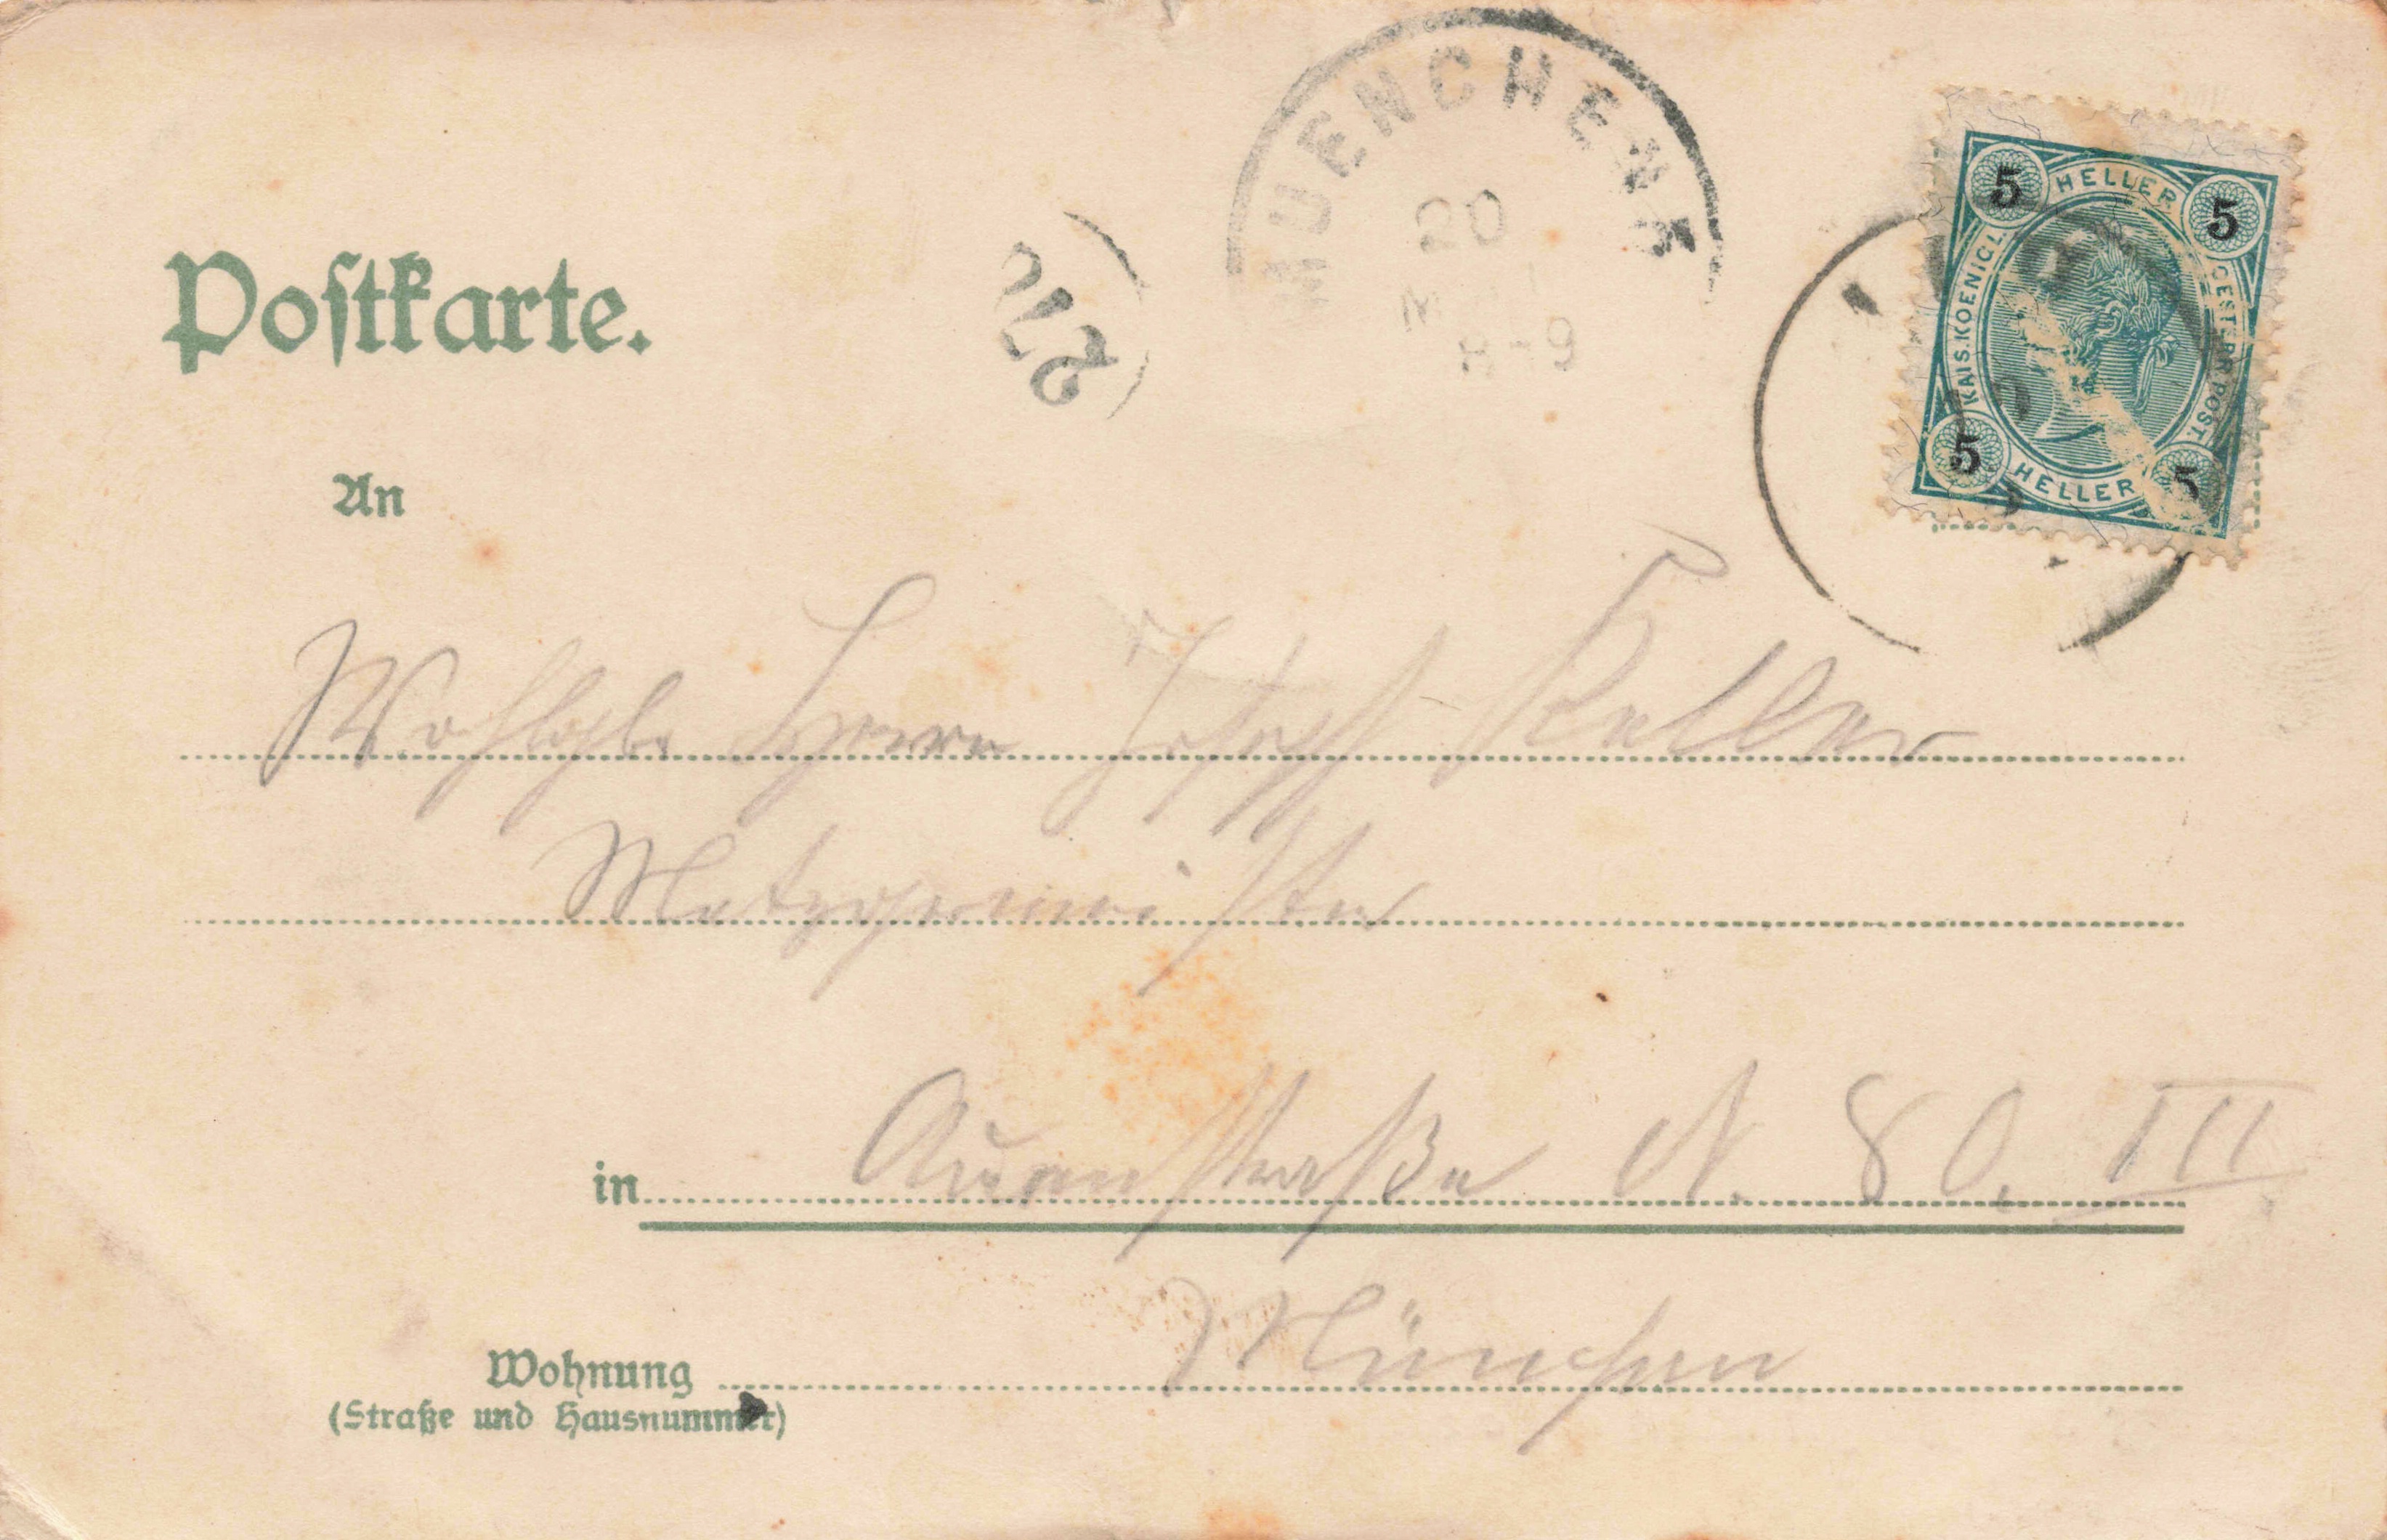 MUENCHEN
20
8-9
5 HELLER 5
KAIS.KOENIGL. OESTERR.POST.
5 HELLER 5
Postkarte.
An
Wohlgb. Herrn Josef Keller
Metzgermeister
in Auenstraße N. 80. III
München
Wohnung
(Straße und Hausnummer)